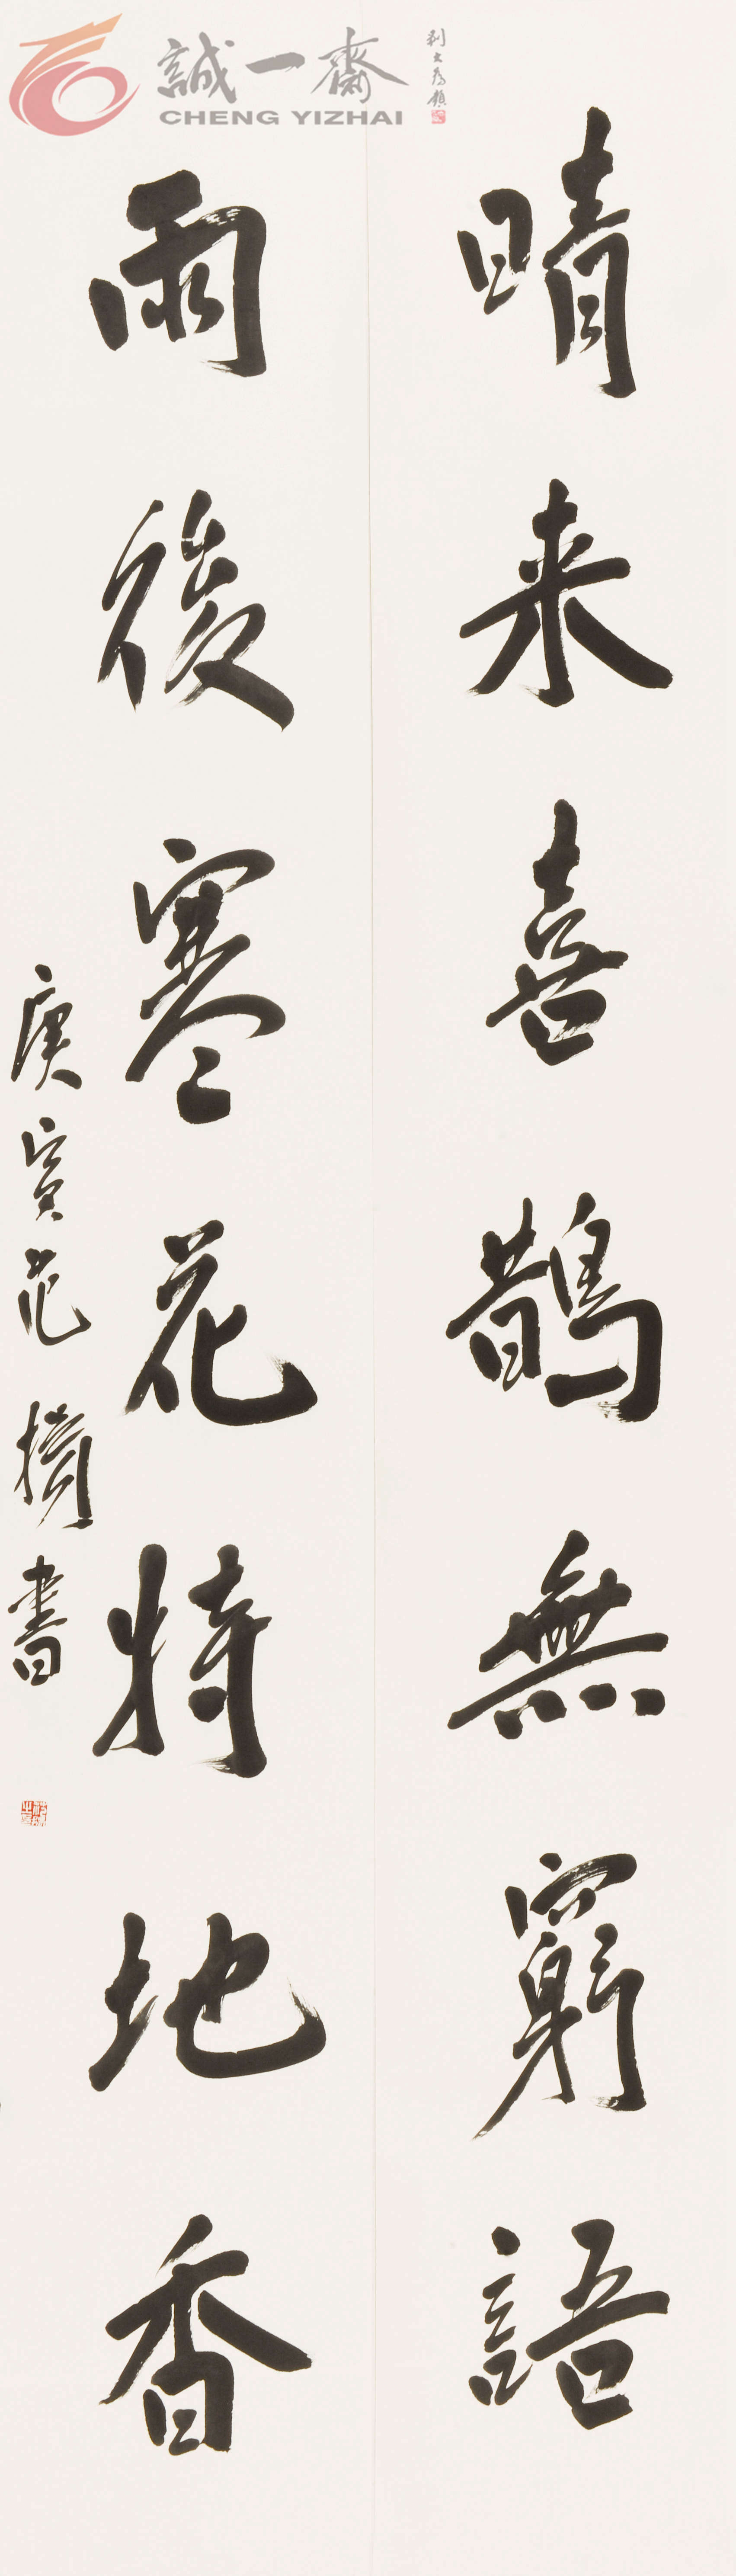 誠一齋
CHENG YIZHAI
晴来喜鵲無窮語
雨後寒花特地香
庚寅范擴書